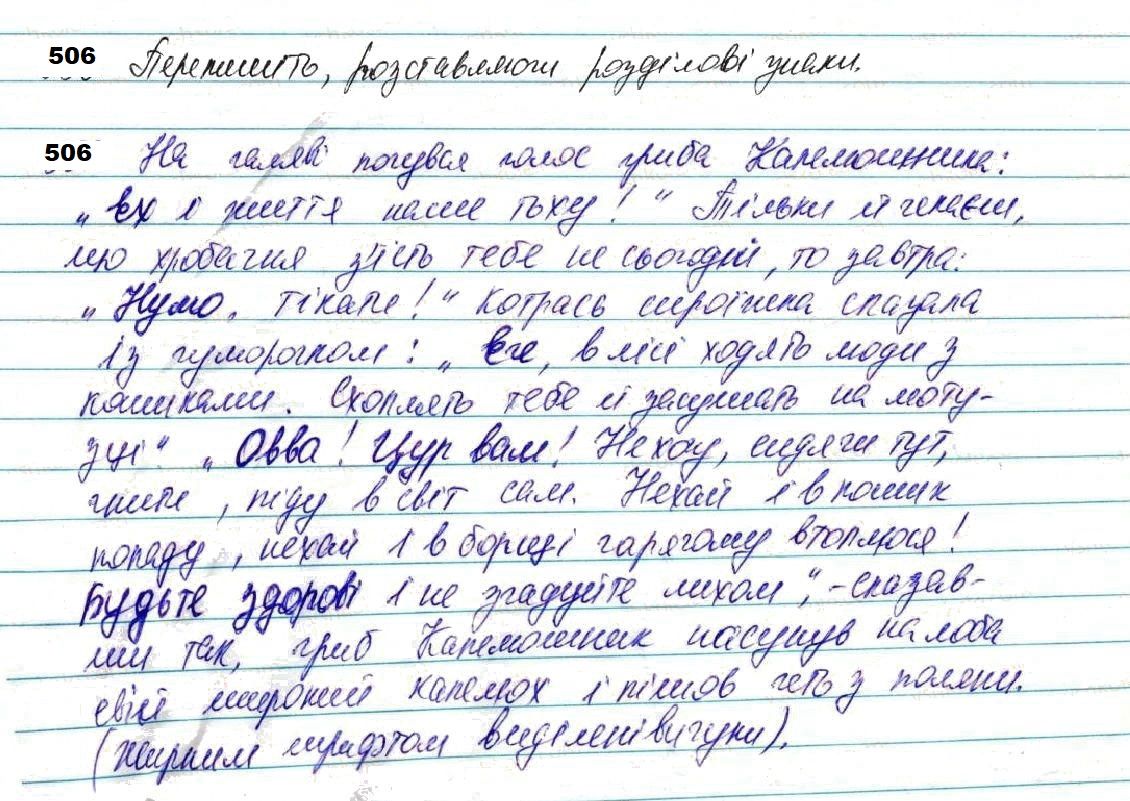 506 Перепишіть, розставляючи розділові знаки.
506 На галяві почувся голос гриба Капелюшника:
„Ех і життя наше тьху!“ Тільки й чекаєш,
що хробачня з'їсть тебе не сьогодні, то завтра:
„Нумо. тікати!“ Котрась сироїжка сказала
із гуморочком: „Еге, в лісі ходять люди з
кошиками. Схоплять тебе й засушать на моту-
зці“ „Овва! Цур вам! Не хочу, сидячи тут,
гнити, піду в світ сам. Нехай і в кошик
попаду, нехай і в борщі гарячому втоплюся!
Будьте здорові і не згадуйте лихом“, - сказав-
ши так, гриб Капелюшник насунув на лоба
свій широкий капелюх і пішов геть з поляни.
(жирним шрифтом виділені вигуки).